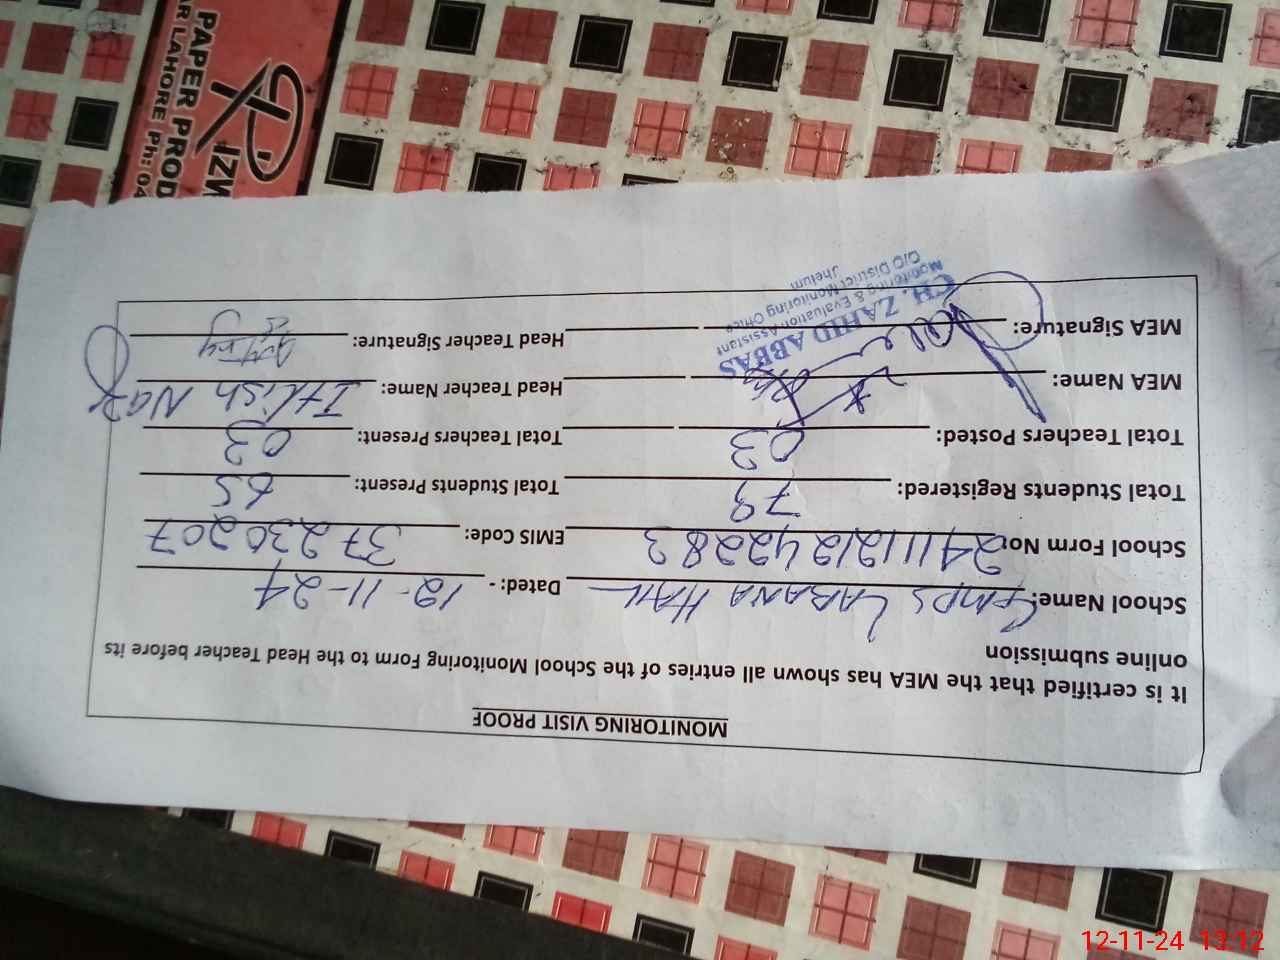 MONITORING VISIT PROOF
It is certified that the MEA has shown all entries of the School Monitoring Form to the Head Teacher before its
online submission
School Name: GMPS LABANA HAIL Dated: - 12-11-24
School Form No: 2411121242283 EMIS Code: 37230207
Total Students Registered: 79 Total Students Present: 65
Total Teachers Posted: 03 Total Teachers Present: 03
MEA Name: Head Teacher Name: Itlish Naz
MEA Signature: Head Teacher Signature:
CH. ZAHID ABBAS
Monitoring & Evaluation Assistant
O/O District Monitoring Office
Jhelum
IZN
PAPER PROD
AR LAHORE Ph: 04
12-11-24 13:12